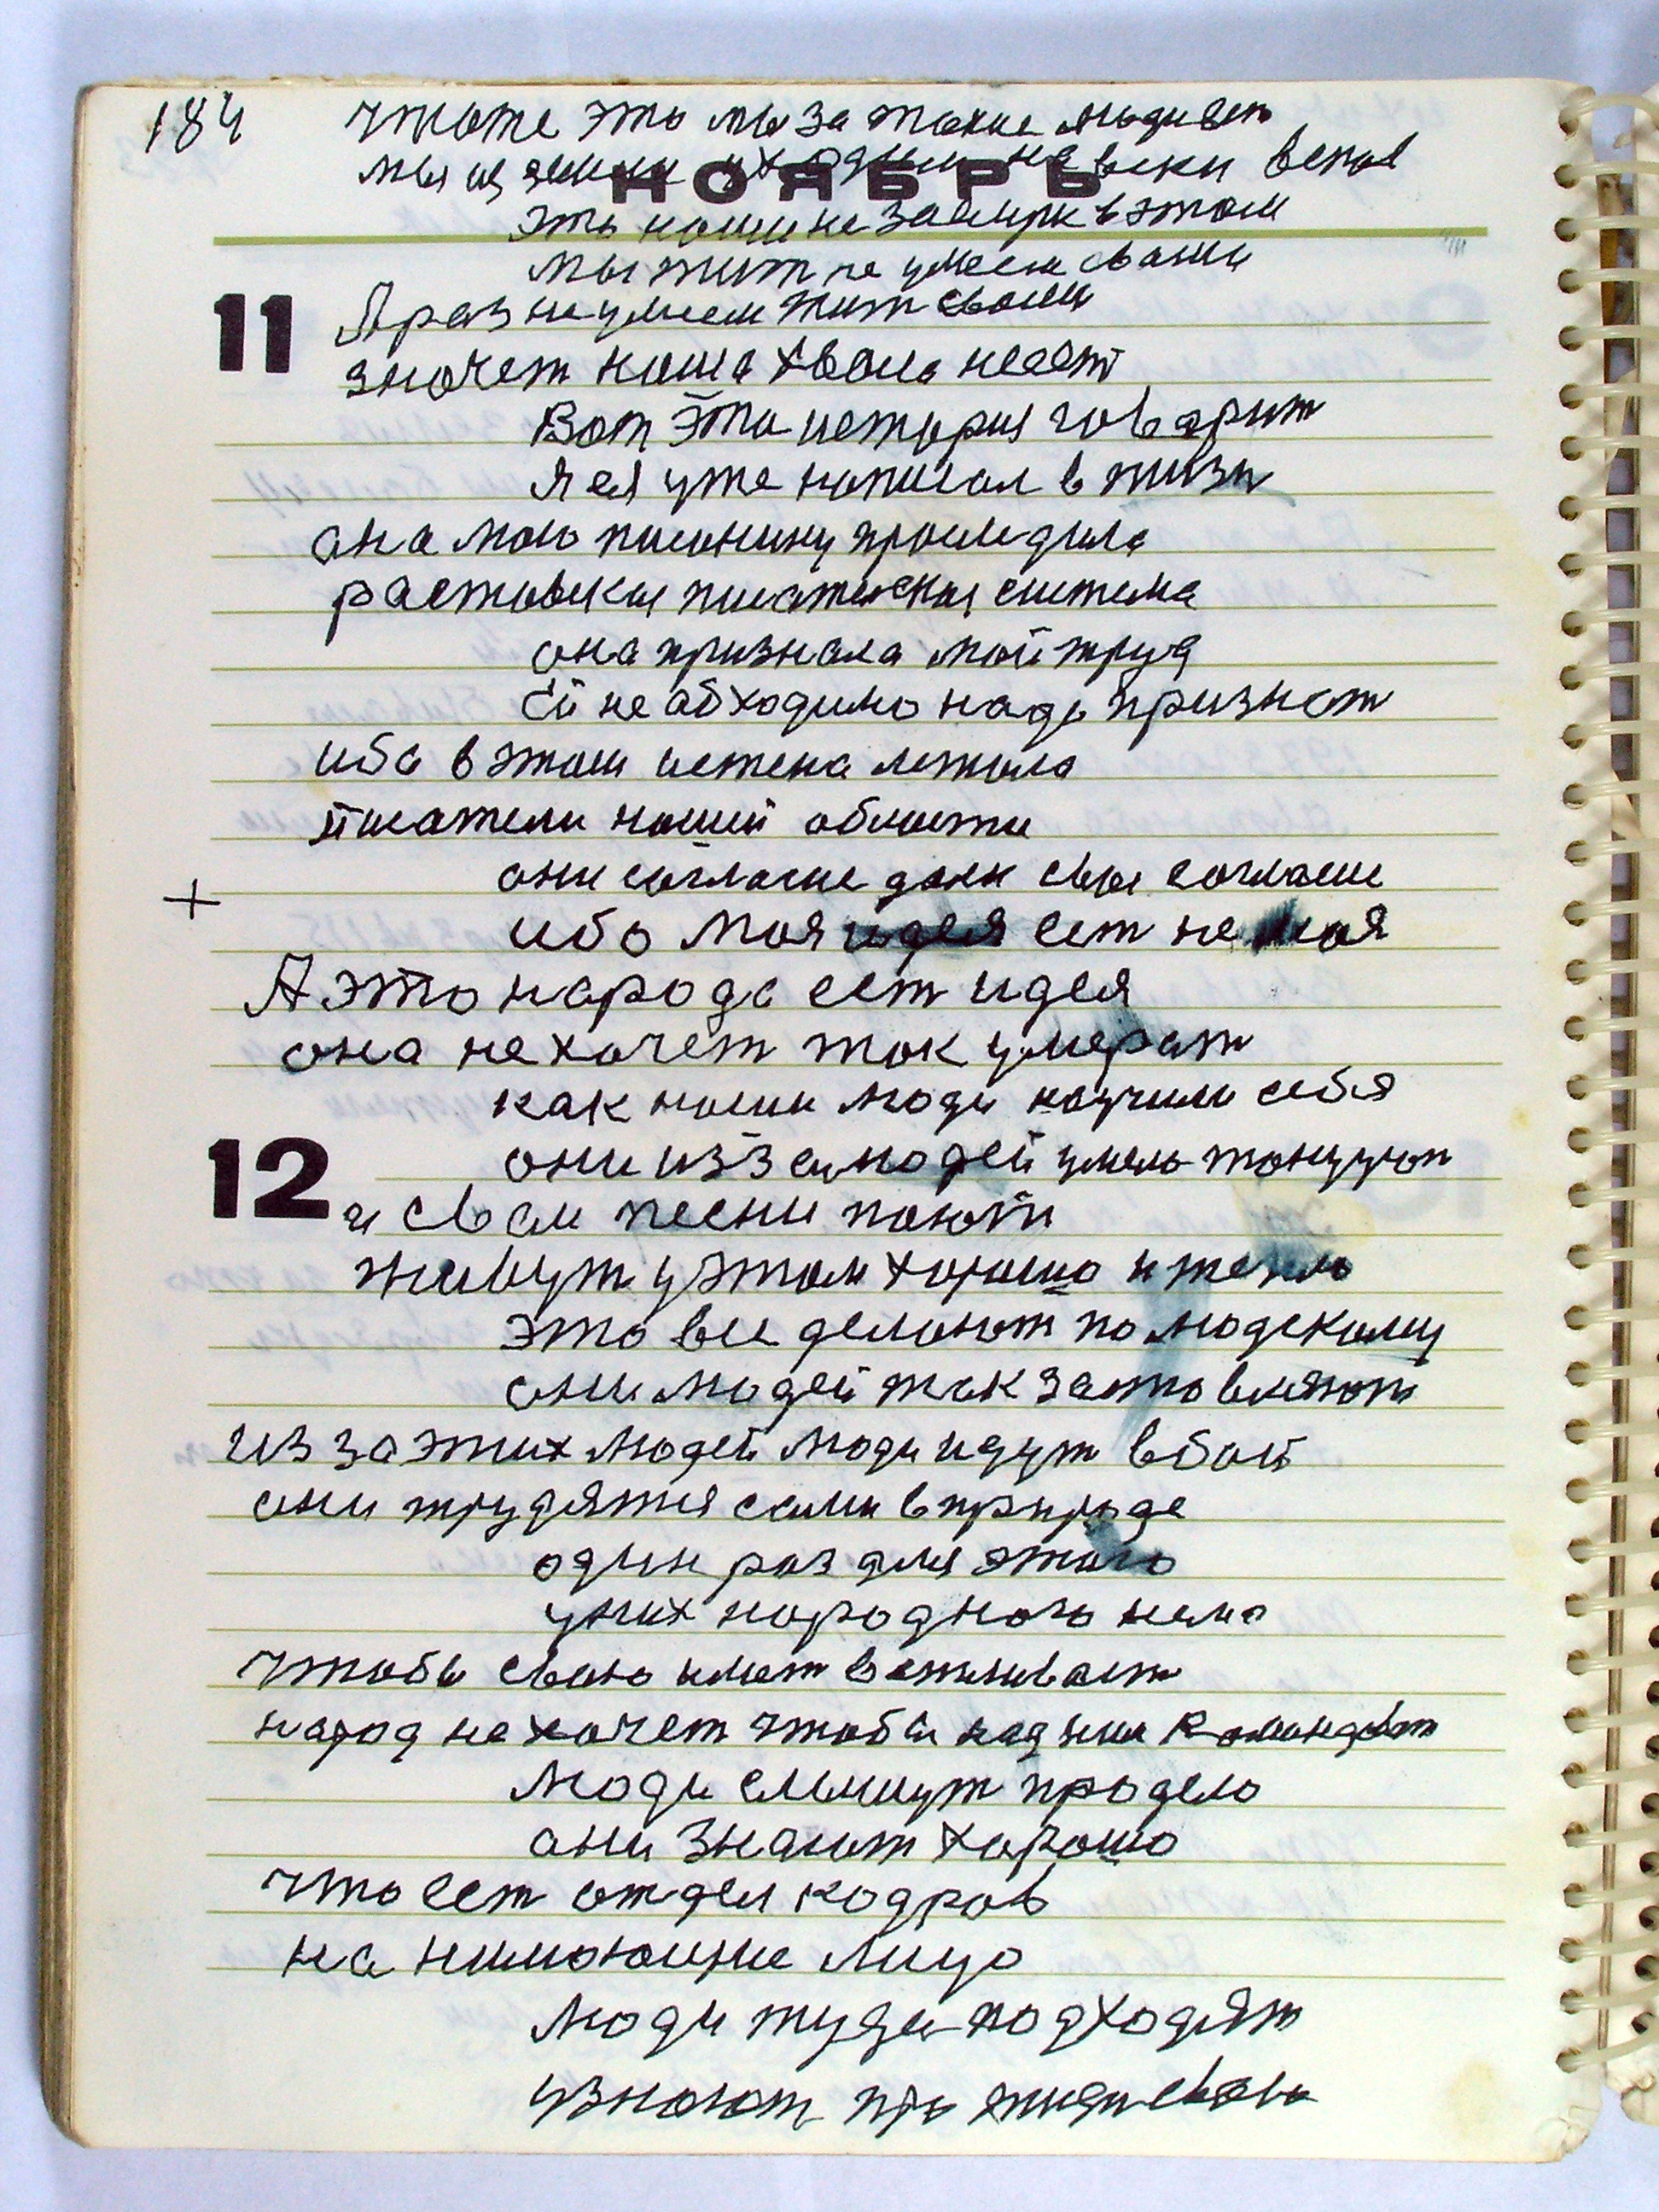 184
чтоже это мы за такие люди ест
мы из земли уходим на веки веков
НОЯБРЬ
это наши не
в этом
мы жит не умеем сваим
11
А раз не умеем жит сваим
значет наша хвала не ест
Вот эта история говарит
я ея уже написал в жизн
ана мою писанину проследила
растовская писательская система
она признала мой труд
Ей не абходимо надо признат
ибо в этом истена лежала
писатели нашей области
они согласие дали свое согласие
ибо моя идея ест не моя
А это народа ест идея
она не хочет так умерат
как наши люди научили себя
12
они из за людей умело танцуют
и сваи песни поют
живут у этом хорошо и тепло
это все делают по людскому
они людей так заставляют
из за этих людей люди идут в бой
они трудятся сами в природе
один раз для этого
у них народного нема
чтобы сваю имет
народ не хочет чтобы над ним
люди
про дело
они знают хорошо
что ест отдел кадров
на
лицо
люди туда подходят
узнают про